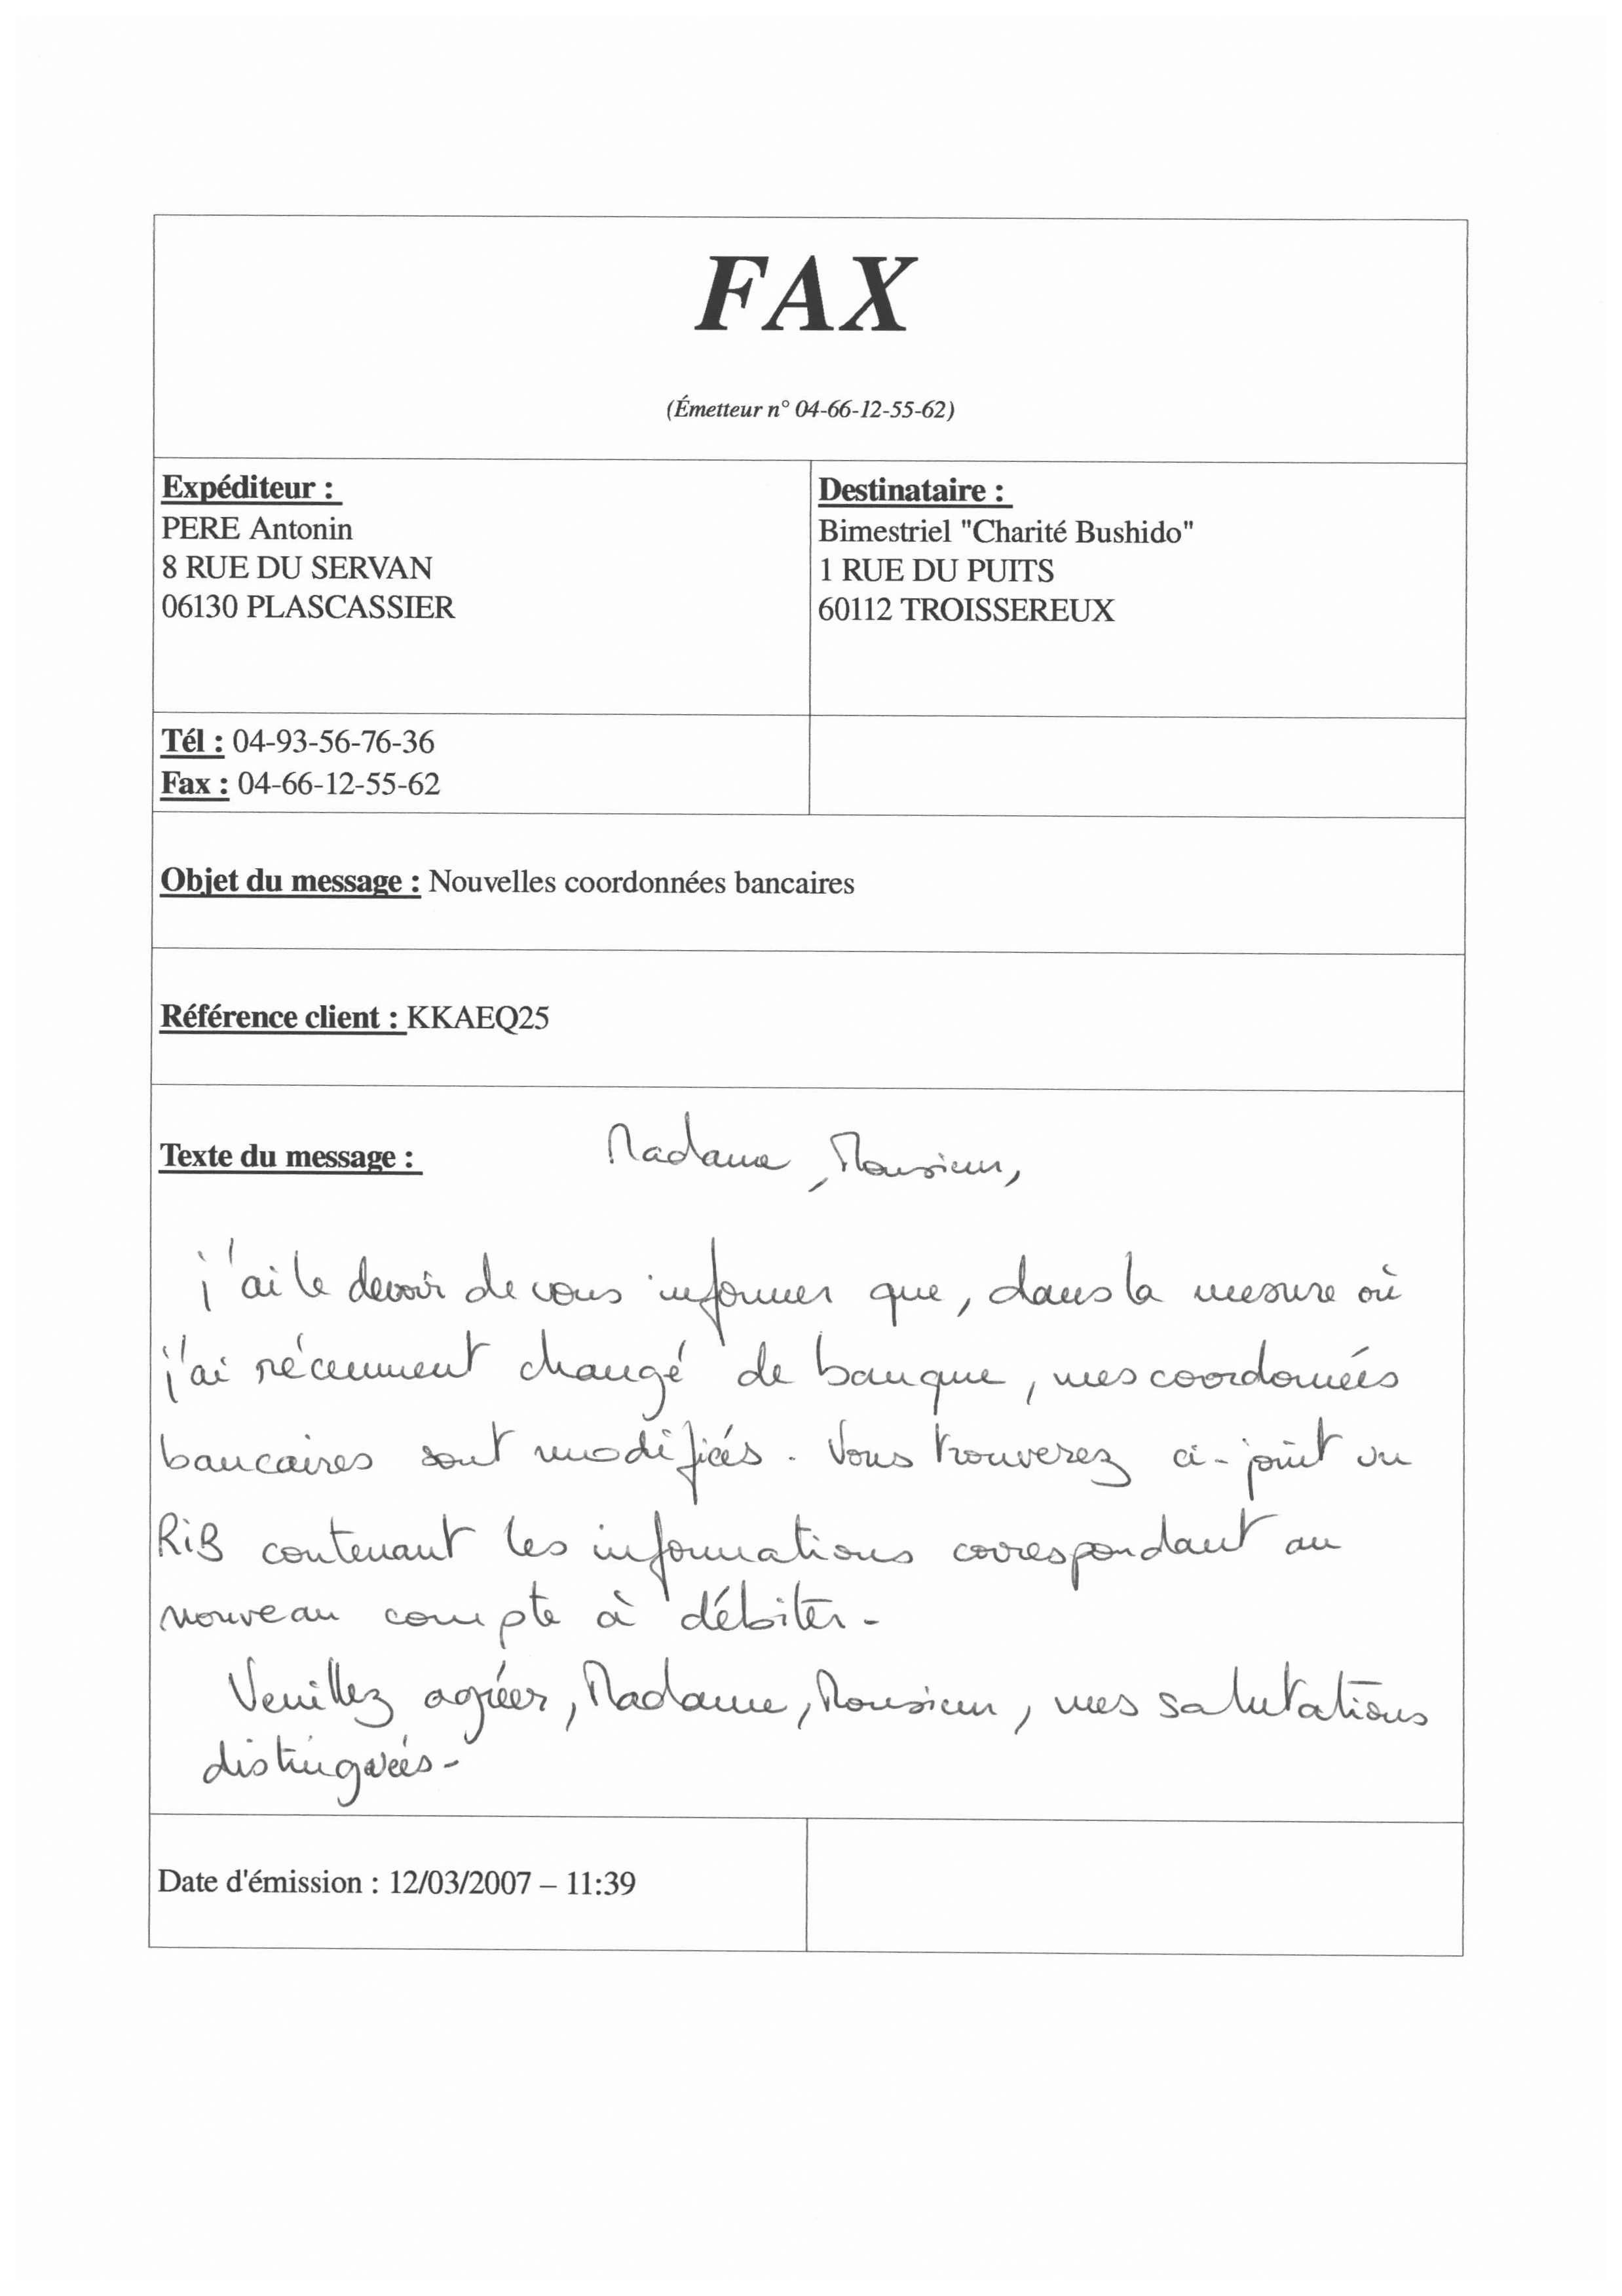 FAX
(Émetteur n° 04-66-12-55-62)
Expéditeur :
PERE Antonin
8 RUE DU SERVAN
06130 PLASCASSIER
Destinataire :
Bimestriel "Charité Bushido"
1 RUE DU PUITS
60112 TROISSEREUX
Tél : 04-93-56-76-36
Fax : 04-66-12-55-62
Objet du message : Nouvelles coordonnées bancaires
Référence client : KKAEQ25
Texte du message :
Madame, Monsieur,
j'ai le devoir de vous informer que, dans la mesure où
j'ai récemment changé de banque, mes coordonnées
bancaires sont modifiés. Vous trouverez ci-joint un
RiB contenant les informations correspondant au
nouveau compte à débiter.
Veuillez agréer, Madame, Monsieur, mes salutations
distinguées.
Date d'émission : 12/03/2007 – 11:39